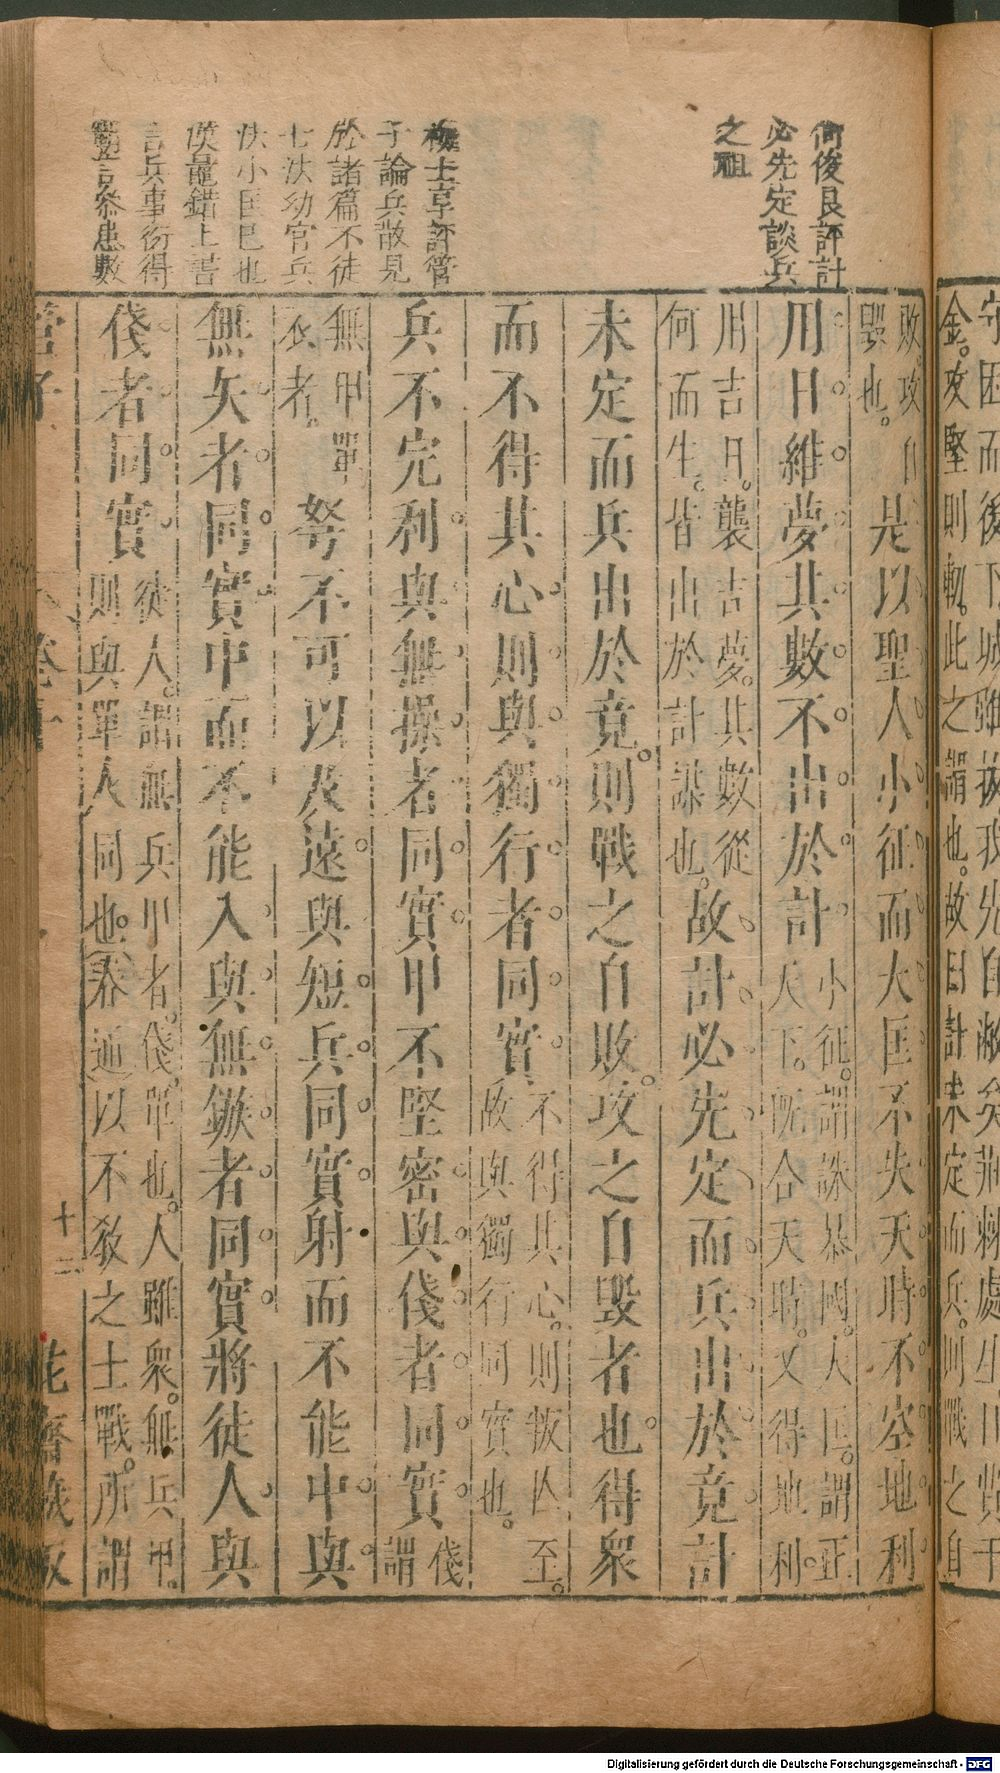 何俊良評計
必先定談兵
之祖
梅士享評管
子論兵散見
於諸篇不徒
七法幼官兵
法小匡已也
漢鼂錯上書
言兵事術得
守困而後下城雖拔我先自敝矣
金。攻堅則軔。此之謂也。故曰計未定而兵。則戰之自
敗、攻自
毀也。
是以聖人小征而大匡不失天時不空地利
用日維夢其數不出於計
小征。謂誅暴國。大匡。謂正
天下。既合天時。又得地利。
用吉日。襲吉夢。其數從
何而生。皆出於計謀也。
故計必先定而兵出於竟計
未定而兵出於竟。則戰之自敗。攻之自毀者也。得衆
而不得其心則與獨行者同實
不得其心。則叛亡至。
故與獨行同實也。
兵不完利與無操者同實甲不堅密與俴者同實
俴
謂
無甲單
衣者。
弩不可以及遠與短兵同實射而不能中與
無矢者同實中而不能入與無鏃者同實將徒人與
俴者同實
徒人。謂無兵甲者。俴。單也。人雖衆。無兵甲。
則與單人同也。(叅通)以不敎之士戰。所謂
管子
卷十
十二
花齋藏板
Digitalisierung gefördert durch die Deutsche Forschungsgemeinschaft - DFG